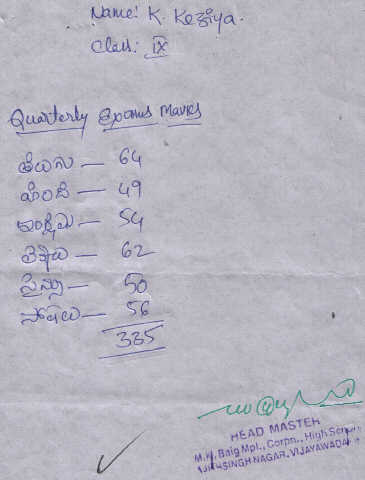 Name: K. Keziya.
Class: IX
Quarterly Exams Marks
తెలుగు — 64
హిందీ — 49
ఇంగ్లీషు — 54
లెక్కలు — 62
సైన్సు — 50
సోషలు — 56
335
HEAD MASTER
M.K. Baig Mpl., Corpn., High School
AJITHSINGH NAGAR, VIJAYAWADA